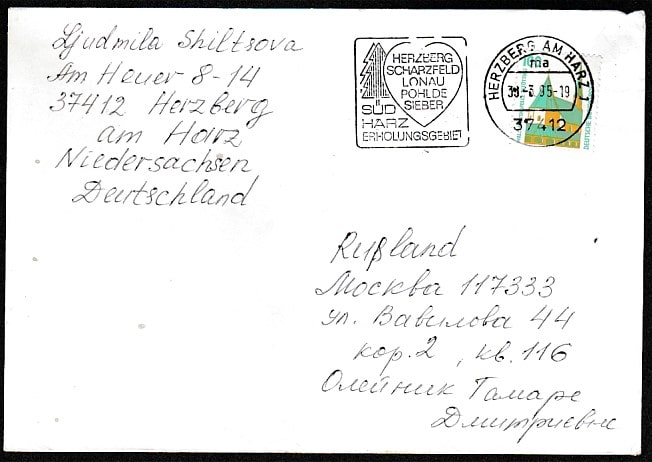 Ljudmila Shiltsova
Am Heuer 8-14
37412 Herzberg
am Harz
Niedersachsen
Deutschland
HERZBERG
SCHARZFELD
LONAU
PÖHLDE
SIEBER
SÜD
HARZ
ERHOLUNGSGEBIET
HERZBERG AM HARZ 1
ma
-3.95-19
37412
100
Rußland
Москва 117333
ул. Вавилова 44
кор. 2, кв. 116
Олейник Тамаре
Дмитриевне